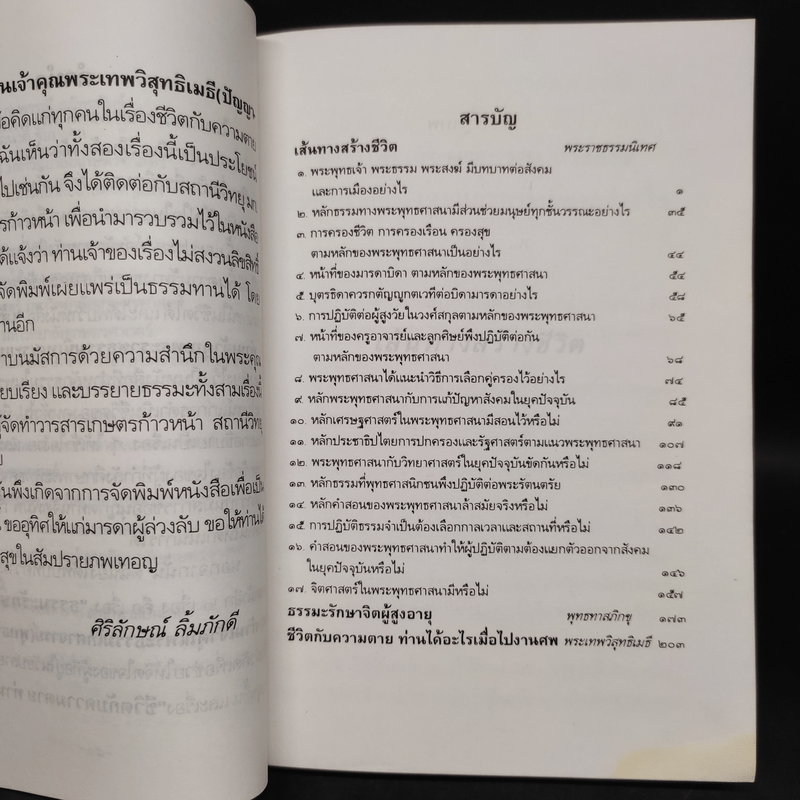 นเจ้าคุณพระเทพวิสุทธิเมธี(ปัญญา
อคิดแก่ทุกคนในเรื่องชีวิตกับความตาย
ฉันเห็นว่าทั้งสองเรื่องนี้เป็นประโยชน์
ไปเช่นกัน จึงได้ติดต่อกับสถานีวิทยุ มก
รก้าวหน้า เพื่อนำมารวบรวมไว้ในหนังสือ
ด้แจ้งว่า ท่านเจ้าของเรื่องไม่สงวนลิขสิทธิ์
จัดพิมพ์เผยแพร่เป็นธรรมทานได้ โดย
านอีก
าบนมัสการด้วยความสำนึกในพระคุณ
ียบเรียง และบรรยายธรรมะทั้งสามเรื่องนี้
ู้จัดทำวารสารเกษตรก้าวหน้า สถานีวิทยุ
ย
ันพึงเกิดจากการจัดพิมพ์หนังสือเพื่อเป็น
ขออุทิศให้แก่มารดาผู้ล่วงลับ ขอให้ท่านได้
สุขในสัมปรายภพเทอญ
ศิริลักษณ์ ลิ้มภักดี
สารบัญ
เส้นทางสร้างชีวิต พระราชธรรมนิเทศ
๑. พระพุทธเจ้า พระธรรม พระสงฆ์ มีบทบาทต่อสังคม
และการเมืองอย่างไร ๑
๒. หลักธรรมทางพระพุทธศาสนามีส่วนช่วยมนุษย์ทุกชั้นวรรณะอย่างไร ๓๕
๓ การครองชีวิต การครองเรือน ครองสุข
ตามหลักของพระพุทธศาสนาเป็นอย่างไร ๔๔
๔ หน้าที่ของมารดาบิดา ตามหลักของพระพุทธศาสนา ๕๔
๕ บุตรธิดาควรกตัญญูกตเวทีต่อบิดามารดาอย่างไร ๕๘
๖. การปฏิบัติต่อผู้สูงวัยในวงศ์สกุลตามหลักของพระพุทธศาสนา ๖๕
๗. หน้าที่ของครูอาจารย์และลูกศิษย์พึงปฏิบัติต่อกัน
ตามหลักของพระพุทธศาสนา ๖๘
๘. พระพุทธศาสนาได้แนะนำวิธีการเลือกคู่ครองไว้อย่างไร ๗๔
๙. หลักพระพุทธศาสนากับการแก้ปัญหาสังคมในยุคปัจจุบัน ๘๕
๑๐. หลักเศรษฐศาสตร์ในพระพุทธศาสนามีสอนไว้หรือไม่ ๙๑
๑๑. หลักประชาธิปไตยการปกครองและรัฐศาสตร์ตามแนวพระพุทธศาสนา ๑๐๗
๑๒. พระพุทธศาสนากับวิทยาศาสตร์ในยุคปัจจุบันขัดกันหรือไม่ ๑๑๘
๑๓. หลักธรรมที่พุทธศาสนิกชนพึงปฏิบัติต่อพระรัตนตรัย ๑๓๐
๑๔. หลักคำสอนของพระพุทธศาสนาล้าสมัยจริงหรือไม่ ๑๓๖
๑๕ การปฏิบัติธรรมจำเป็นต้องเลือกกาลเวลาและสถานที่หรือไม่ ๑๔๒
๑๖. คำสอนของพระพุทธศาสนาทำให้ผู้ปฏิบัติตามต้องแยกตัวออกจากสังคม
ในยุคปัจจุบันหรือไม่ ๑๔๖
๑๗. จิตศาสตร์ในพระพุทธศาสนามีหรือไม่ ๑๕๗
ธรรมะรักษาจิตผู้สูงอายุ พุทธทาสภิกขุ ๑๗๓
ชีวิตกับความตาย ท่านได้อะไรเมื่อไปงานศพ พระเทพวิสุทธิเมธี ๒๐๓